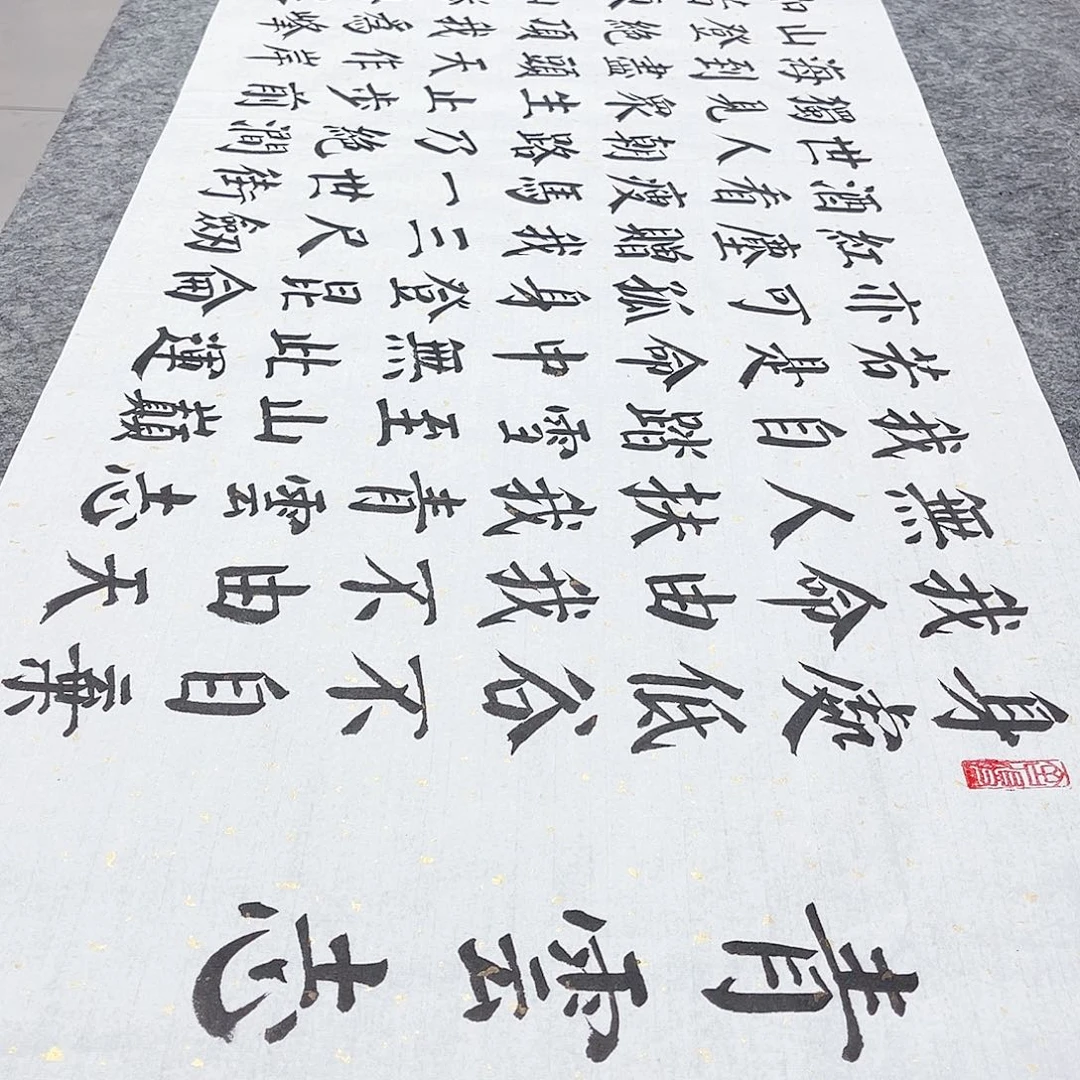 青雲志
身處低谷不自棄
我命由我不由天
無人扶我青雲志
我自踏雪至山巔
若是命中無此運
亦可孤身登昆侖
紅塵贈我三尺劍
酒看瘦馬一世街
世人朝路乃絕澗
獨見衆生止步前
海到盡頭天作岸
山登絕頂我爲峰